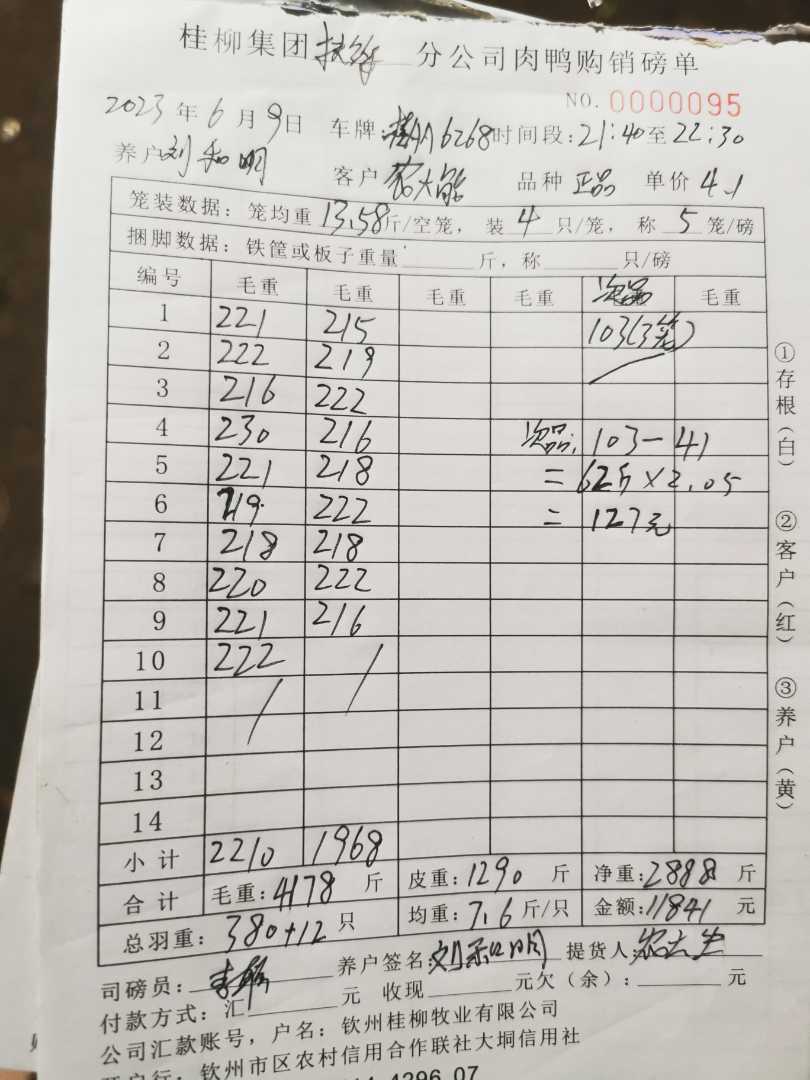 桂柳集团 分公司肉鸭购销磅单
NO. 0000095
2023年6月9日 车牌:桂AA6268 时间段:21:40至22:30
养户 刘和明 客户 农大能 品种 正品 单价 4.1
笼装数据: 笼均重 13.58 斤/空笼, 装 4 只/笼, 称 5 笼/磅
捆脚数据: 铁筐或板子重量 斤, 称 只/磅
编号 毛重 毛重 毛重 毛重 次品 毛重
1 221 215 103(3笼)
2 222 219
3 216 222
4 230 216 次品: 103-41
5 221 218 =62斤×2.05
6 219 222 =127元
7 218 218
8 220 222
9 221 216
10 222
11
12
13
14
小计 2210 1968
合计 毛重:4178 斤 皮重:1290 斤 净重:2888 斤
总羽重: 380+12 只 均重:7.6 斤/只 金额:11841 元
司磅员: 养户签名:刘和明 提货人:
付款方式:汇 元 收现 元欠(余): 元
公司汇款账号,户名:钦州桂柳牧业有限公司
开户行:钦州市区农村信用合作联社大垌信用社
4296 07
①存根(白) ②客户(红) ③养户(黄)